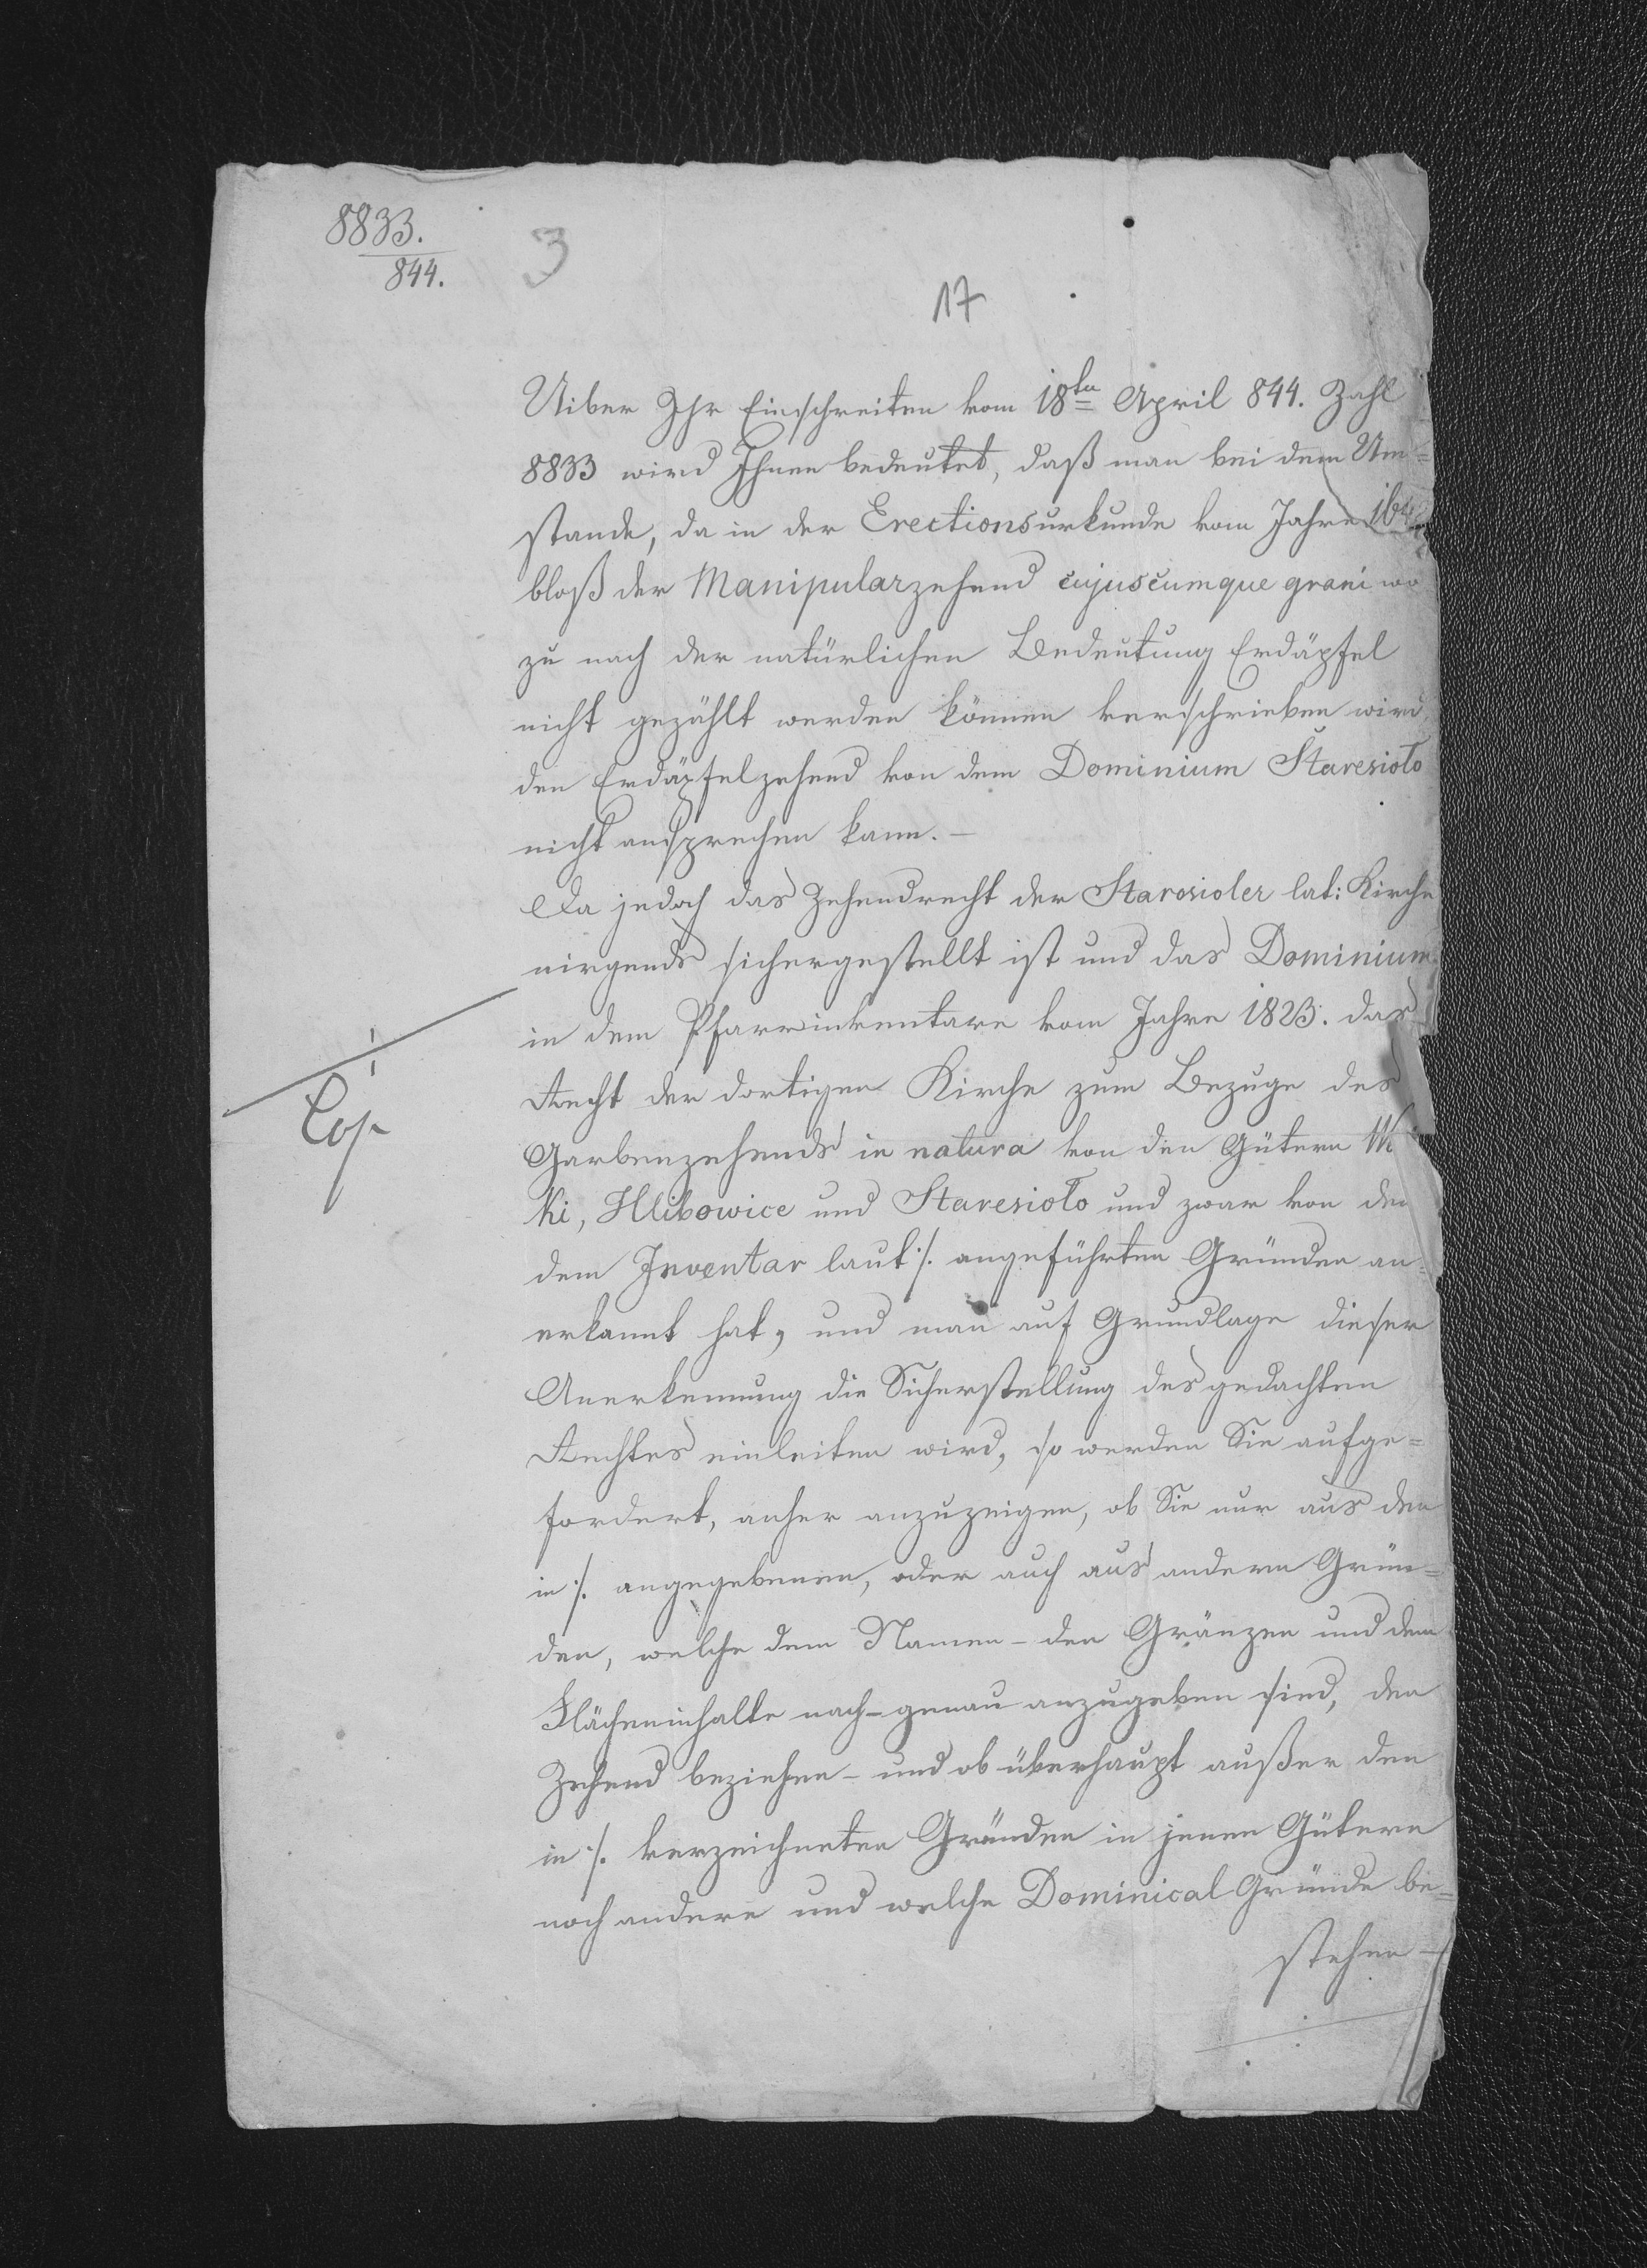 8833.
844.
3
17
Uiber Ihr Einschreiten vom 18ten April 844. Zahl
8833 wird Ihnen bedeutet, daß man bei dem Um=
stande, da in der Erectionsurkunde vom Jahre
bloß der Manipularzehend cujuscumque grani wo
zu nach der natürlichen Bedeutung Erdäpfel
nicht gezählt werden können verschrieben wird,
den Erdäpfelzehend von dem Dominium Staresioło
nicht ansprechen kann. –
Da jedoch das Zehendrecht der Starosioler lat: Kirche
nirgends sichergestellt ist und das Dominium
in dem Pfarrinventare vom Jahre 1823. das
Recht der dortigen Kirche zum Bezuge des
Garbenzehends in natura von den Gütern
ki, Hlibowice und Staresioło und zwar von den
dem Inventar laut ·/. angeführten Gründen an=
erkannt hat, und man auf Grundlage dieser
Anerkennung die Sicherstellung des gedachten
Rechtes einleiten wird, so werden Sie aufge=
fordert, anher anzuzeigen, ob Sie nur aus den
in ·/. angegebenen, oder auch aus andern Grün=
den, welche dem Namen – den Gränzen und dem
Flächeninhalte nach – genau anzugeben sind, den
Zehend beziehen – und ob überhaupt außer den
in ·/. verzeichneten Gründen in jenen Gütern
noch andere und welche Dominical Gründe be=
stehen –
·/.
Cop